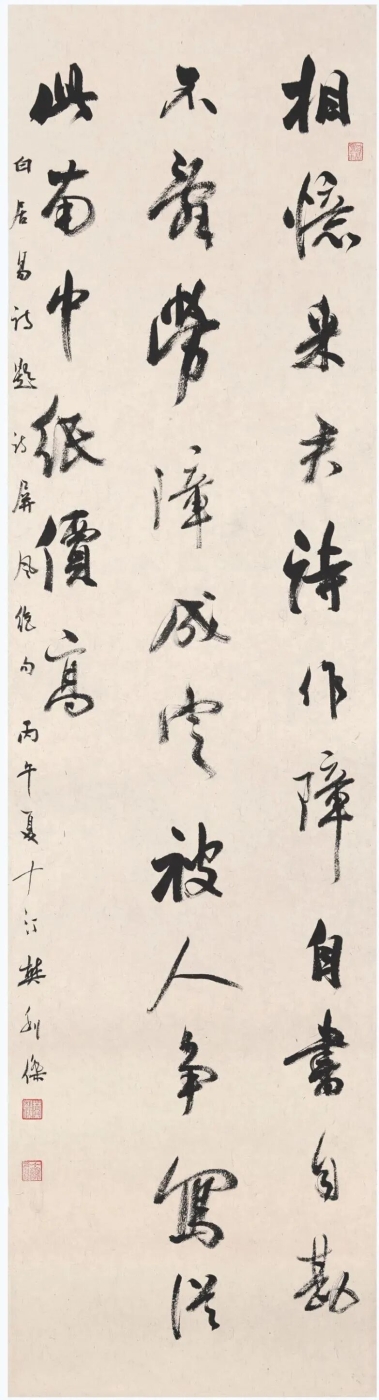 相憶采君詩作障自書自勘
不辭勞障成定被人争寫從
此南中紙價高
白居易詩題詩屏風絕句 丙午夏十汀樊利傑